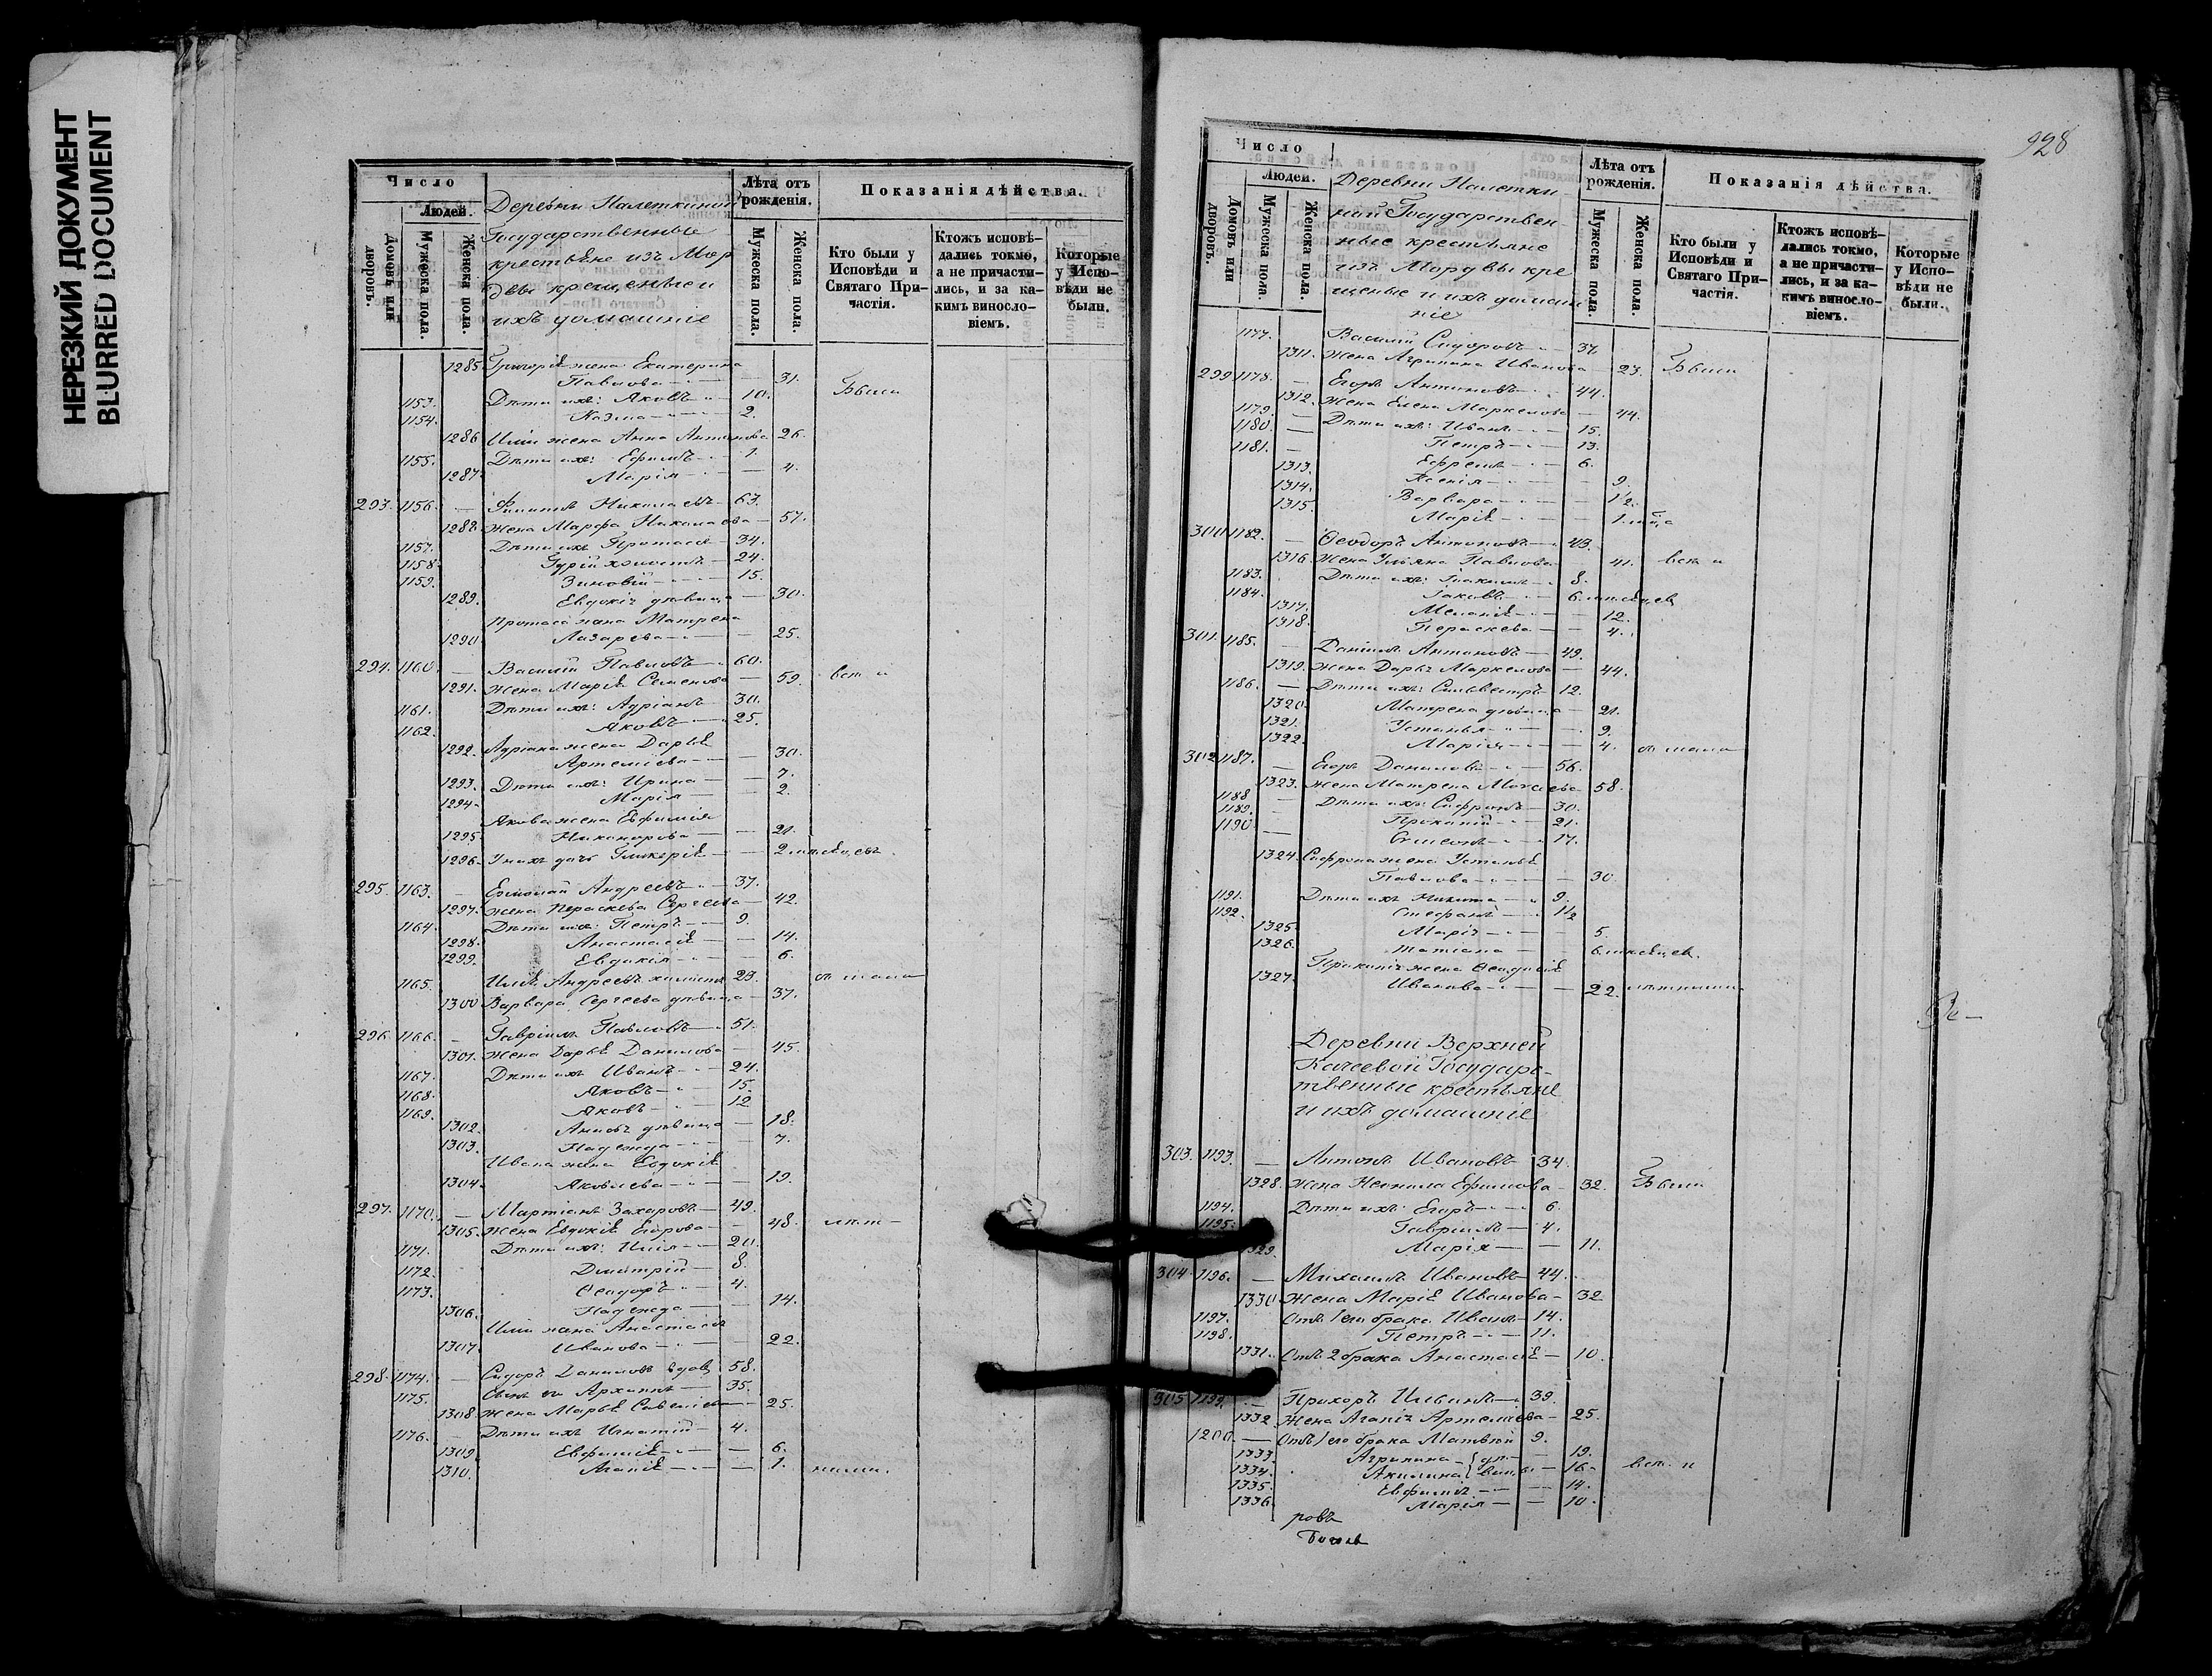 НЕРЕЗКИЙ ДОКУМЕНТ
BLURRED DOCUMENT
Число
Людей.
Домовъ или дворовъ.
Мужеска пола.
Женска пола.
Деревни Палеткиной
Государственные
крестьяне изъ Мор
двы крещеные и
ихъ домашніе
Лѣта отъ рожденія.
Мужеска пола.
Женска пола.
Показанія дѣйства.
Кто были у Исповѣди и Святаго Причастія.
Ктожъ исповѣдались токмо, а не причастились, и за какимъ винословіемъ.
Которые у Исповѣди не были.
1285 Григорія жена Екатерина
Павлова — 31. Были
1153. Дѣти ихъ: Яковъ 10.
1154. Казма 2.
1286 Иліи жена Анна Антипова 26.
1155. Дѣти ихъ: Ефимъ 1.
1287 Марія — 4.
293. 1156. — Филипъ Николаевъ 63.
1288 Жена Марфа Николаева — 57.
1157. Дѣти ихъ Протасій 34.
1158 Гурій холостъ 24.
1159. Зиновій 15.
1289. Евдокія дѣвица — 30.
Протасія жена Матрена
1290 Лазарева — 25.
294. 1160. — Василій Павловъ 60.
1291. Жена Марія Семенова — 59.
1161. Дѣти ихъ: Адріанъ 30.
1162. Яковъ 25.
1292. Адріана жена Дарья
Артеміева — 30.
1293. Дѣти ихъ: Ирина — 7.
1294. Марія — 2.
Якова жена Евфимія
1295 Никанорова — 21.
1296. У нихъ дочь Гликерія — 2 мѣсяцевъ
295. 1163. — Ермолай Андреевъ 37.
1297. Жена Параскева Сергеева — 42.
1164. Дѣти ихъ: Петръ 9.
1298. Анастасія — 14.
1299. Евдокія — 6.
1165. Илья Андреевъ холостъ 23.
1300 Варвара Сергеева дѣвица — 37.
296. 1166. — Гавріилъ Павловъ 51.
1301. Жена Дарья Данилова — 45.
1167. Дѣти ихъ Иванъ 24.
1168. Яковъ 15.
1169. Яковъ 12
1302. дѣвица — 18.
1303. Надежда — 7.
Ивана жена Евдокія
1304. Яковлева — 19.
297. 1170. — Мартіанъ Захаровъ 49.
1305. Жена Евдокія Егорова — 48.
1171. Дѣти ихъ: Илія 20.
1172. Дмитрій 8.
1173. Ѳеодоръ 4.
1306. Надежда — 14.
Иліи жена Анастасія
1307. Иванова — 22.
298. 1174. — Сидоръ Даниловъ вдовъ 58.
1175. Архиппъ 35.
1308. Жена Марья Савеліева — 25.
1176. — Дѣти ихъ Игнатій 4.
1309. Евфимія — 6.
1310. Агапія — 1.
928
Число
Людей.
Домовъ или дворовъ.
Мужеска пола.
Женска пола.
Деревни Палетки
ной Государствен-
ные крестьяне
изъ Мордвы кре
щеные и ихъ домаш
ніе
Лѣта отъ рожденія.
Мужеска пола.
Женска пола.
Показанія дѣйства.
Кто были у Исповѣди и Святаго Причастія.
Ктожъ исповѣдались токмо, а не причастились, и за какимъ винословіемъ.
Которые у Исповѣди не были.
1177. Василій Сидоровъ 37
1311. Жена Агрипина Иванова 23. Были
299 1178. — Егоръ Антиповъ 44.
1312. Жена Елена Маркелова — 44.
1179. — Дѣти ихъ: Иванъ 15.
1180. — Петръ 13.
1181. — Ефремъ 6.
1313. Ксенія — 9.
1314. Варвара — 1½.
1315. Марія — 1.
300 1182. — Ѳеодоръ Антоновъ 43.
1316. Жена Ульяна Павлова 41.
1183. Дѣти ихъ: 8.
1184. Іаковъ 6. мѣсяцев
1317. Меланія 12.
1318. Параскева — 4.
301. 1185. — Даніилъ Антоновъ 49.
1319. Жена Дарья Маркелова — 44.
1186. — Дѣти ихъ: Сильвестръ 12.
1320. Матрена дѣвица — 21.
1321. Устинья — 9.
1322. Марія — 4.
302 1187. — Егоръ Даниловъ 56.
1323. Жена Матрена 58.
1188 Дѣти ихъ: Сафронъ 30.
1189. Прокопій 21.
1190. Симеонъ 17.
1324. Сафрона жена Устинья
Павлова — 30.
1191. Дѣти ихъ Никита 9.
1192. Стефанъ 1½
1325. Марія — 5.
1326. Татіана — 6 мѣсяцев.
Прокопія жена Ѳеодосія
1327. Иванова — 22.
Деревни Верхней
Качеевой Государс-
твенные крестьяне
и ихъ домашніе
303. 1193. — Антонъ Ивановъ 34.
1328. Жена Неонила Ефимова 32. Были
1194. Дѣти ихъ: Егоръ 6.
1195. Гавриилъ 4.
1329. Марія — 11.
304. 1196. — Михаилъ Ивановъ 44.
1330 Жена Марія Иванова 32
1197. Отъ 1го брака Иванъ 14.
1198. Петръ 11.
1331. Отъ 2 брака Анастасія 10.
305 1199. — Прохоръ Ильинъ 39.
1332 Жена Агапія Артемьева 25.
1200. — Отъ 1го брака Матвѣй 9.
1333. Агрипина 19.
1334. Акилина 16.
1335. Евфимія — 14.
1336. Марія — 10.
ровъ